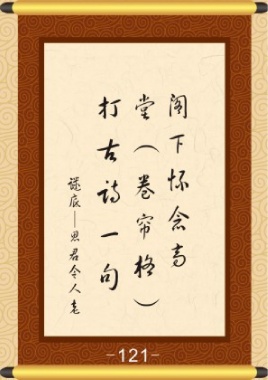 阁下怀念高
堂（卷帘格）
打古诗一句
谜底——思君令人老
-121-